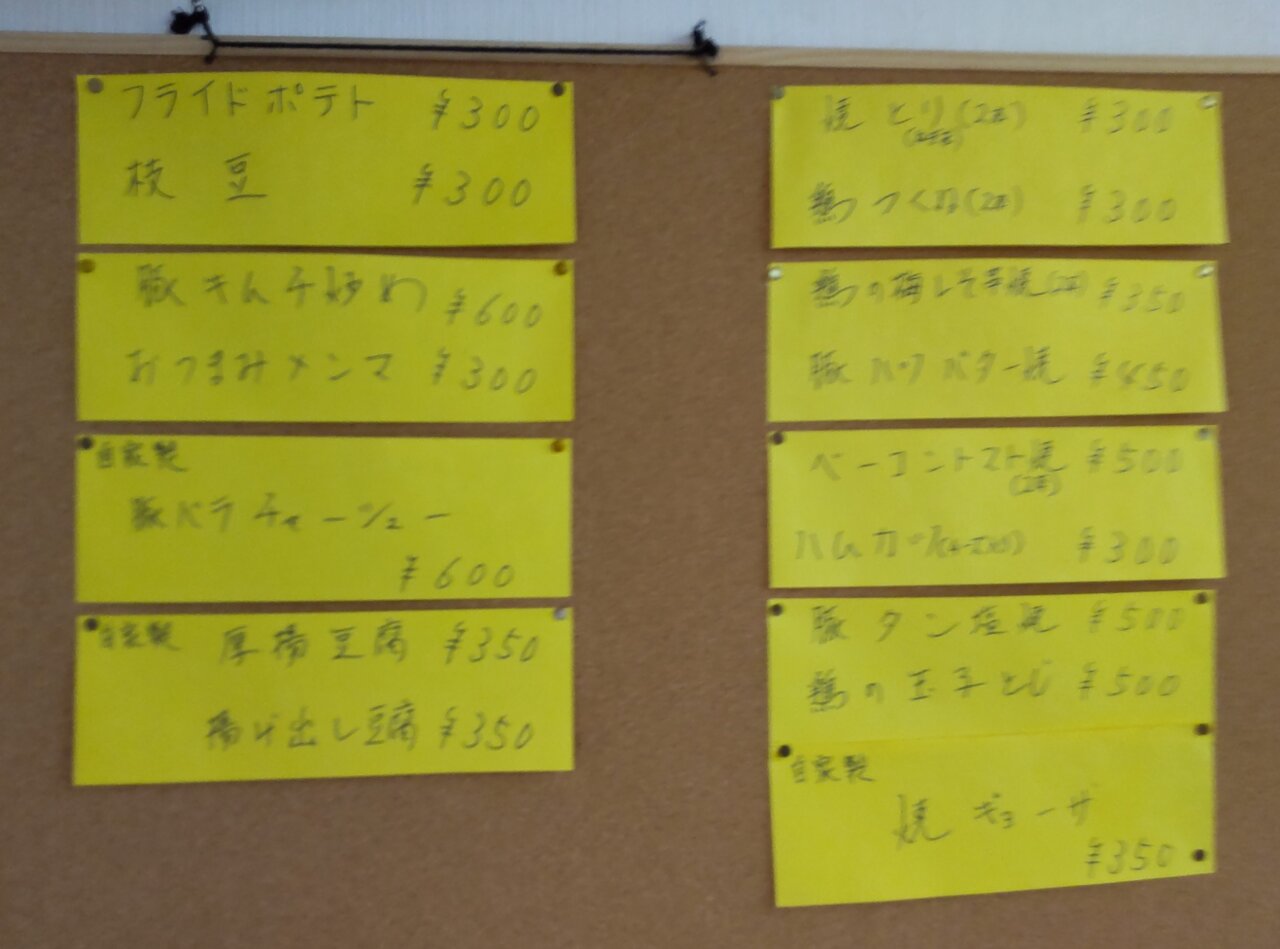 フライドポテト ¥300
枝豆 ¥300
豚キムチ炒め ¥600
おつまみメンマ ¥300
自家製
豚バラチャーシュー
¥600
自家製 厚揚豆腐 ¥350
揚げ出し豆腐 ¥350
焼とり(2本) ¥300
鶏つくね(2本) ¥300
鶏の梅しそ ¥350
豚 バター焼 ¥450
ベーコントマト焼 ¥500
(2本)
ハムカツ ¥300
豚タン塩焼 ¥500
鶏の玉子とじ ¥500
自家製
焼ギョーザ
¥350